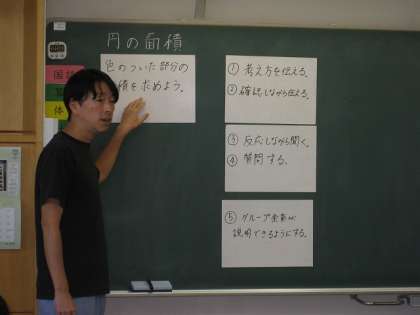 円の面積
色のついた部分の
積を求めよう。
① 考え方を伝える。
② 確認しながら伝える。
③ 反応しながら聞く。
④ 質問する。
⑤ グループ全員が
説明できるようにする。
国
体